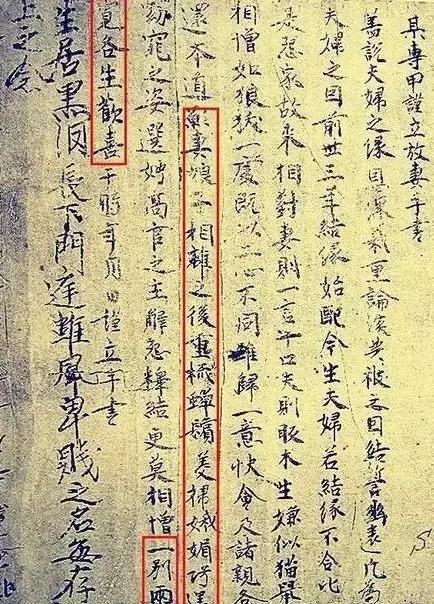 某專甲謹立放妻手書
蓋說夫婦之緣恩深義重論談共被之因結誓幽遠凡為
夫婦之因前世三年結緣始配今生夫婦若結緣不合比
是怨家故來相對妻則一言十口夫則反木生嫌似猫鼠
相憎如狼㹸一處既以二心不同難歸一意快會及諸親各
還本道願妻娘子相離之後重梳蟬鬢美掃娥媚巧逞
窈窕之姿選娉高官之主解怨釋結更莫相憎一別兩
寬各生歡喜于時年月日謹立手書
生居黑 長下門庭雖 卑賤之名每存
上之念